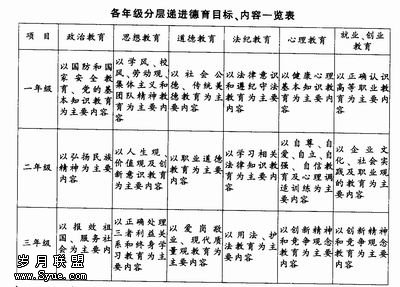 各年级分层递进德育目标、内容一览表
项目
政治教育
思想教育
道德教育
法纪教育
心理教育
就业、创业
教育
一年级
以国防和国
家安全教
育、党的基
本知识教育
为主要内容
以学风、校
风、劳动观、
集体主义和
团队精神教
育为主要内
容
以社会公
德、传统美
德教育为主
要内容
以法律意识
和遵纪守法
教育为主要
内容
以健康心理
基本知识教
育为主要内
容
以正确认识
高等职业教
育为主要内
容
二年级
以弘扬民族
精神为主要
内容
以人生观、
价值观及创
新意识教育
为主要内容
以职业道德
教育为主要
内容
以学习相关
法律知识教
育为主要内
容
以自尊、自
爱、自立、自
强、自信教
育及心理调
适训练为主
要内容
以企业文
化、社会实
践及职业观
教育为主要
内容
三年级
以报效祖
国、服务社
会为主要内
容
以正确处理
三者利益关
系和终身学
习教育为主
要内容
以爱岗敬
业、现代质
量观教育为
主要内容
以用法、护
法教育为主
要内容
以创新精神
和竞争观念
教育为主要
内容
以创新精神
和竞争观念
教育为主要
内容
岁月联盟
www.Syue.com